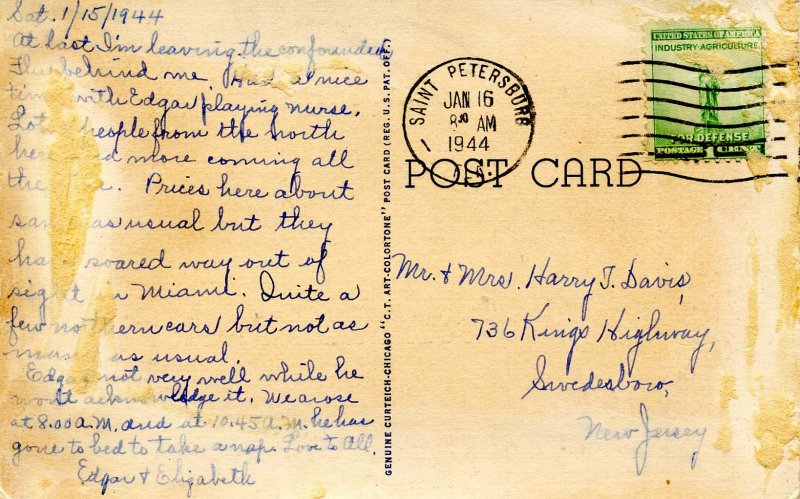 Sat. 1/15/1944
At last I'm leaving the confounded
Flu behind me. Had a nice
time with Edgar playing nurse.
Lots people from the north
here and more coming all
the time. Prices here about
same as usual but they
have soared way out of
sight in Miami. Quite a
few northern cars but not as
many as usual.
Edgar not very well while he
won't acknowledge it. We arose
at 8.00 A.M. and at 10.45 A.M. he has
gone to bed to take a nap. Love to All.
Edgar & Elizabeth
GENUINE CURTEICH-CHICAGO "C.T. ART-COLORTONE" POST CARD (REG. U.S. PAT. OFF.)
SAINT PETERSBURG
JAN 16
8 30 AM
1944
FLA.
UNITED STATES OF AMERICA
INDUSTRY-AGRICULTURE
FOR DEFENSE
POSTAGE
POST CARD
Mr. & Mrs. Harry T. Davis,
736 Kings Highway,
Swedesboro,
New Jersey